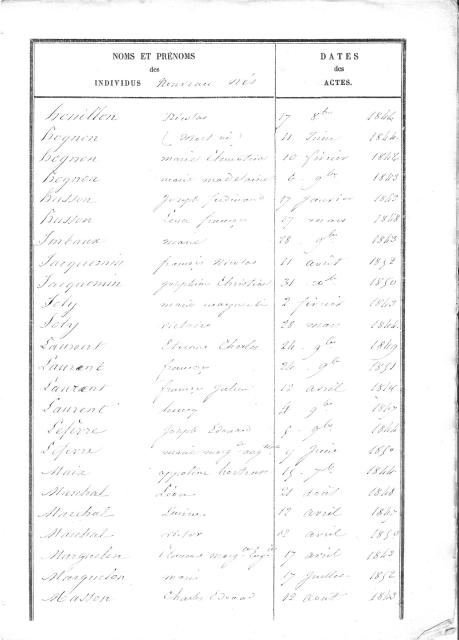 NOMS ET PRÉNOMS DATES
des des
INDIVIDUS Nouveau nés ACTES.
houillon Nicolas 17 8bre 1844
hognon (mort né) 11 Juin 1844
hognon marie Clémentine 10 février 1842
hognon marie madelaine 6 9bre 1843
husson Joseph ferdinand 17 Janvier 1843
husson françois 27 mars 1848
Imbaux marie 28 9bre 1843
Jacquemin francis Nicolas 11 août 1852
Jacquemin Joséphine Christine 31 1850
Joly marie marguerite 2 février 1843
Joly victoire 28 mars 1844
Laurent Etienne Charles 24 9bre 1849
Laurent françois 24 9bre 1851
Laurent françois Julien 12 avril
Laurent 4 9bre 1847
Lefèvre Joseph Edouard 5 9bre 1844
Lefevre marie 9 Juin 1850
Maix appoline 15 7bre 1844
Marchal Léon 21 août 1848
Marchal 12 avril
Marchal victor 12 avril
Marguelon 17 avril 1843
Marguelon marie 17 Juillet 1852
Masson Charles Edouard 12 août 1843